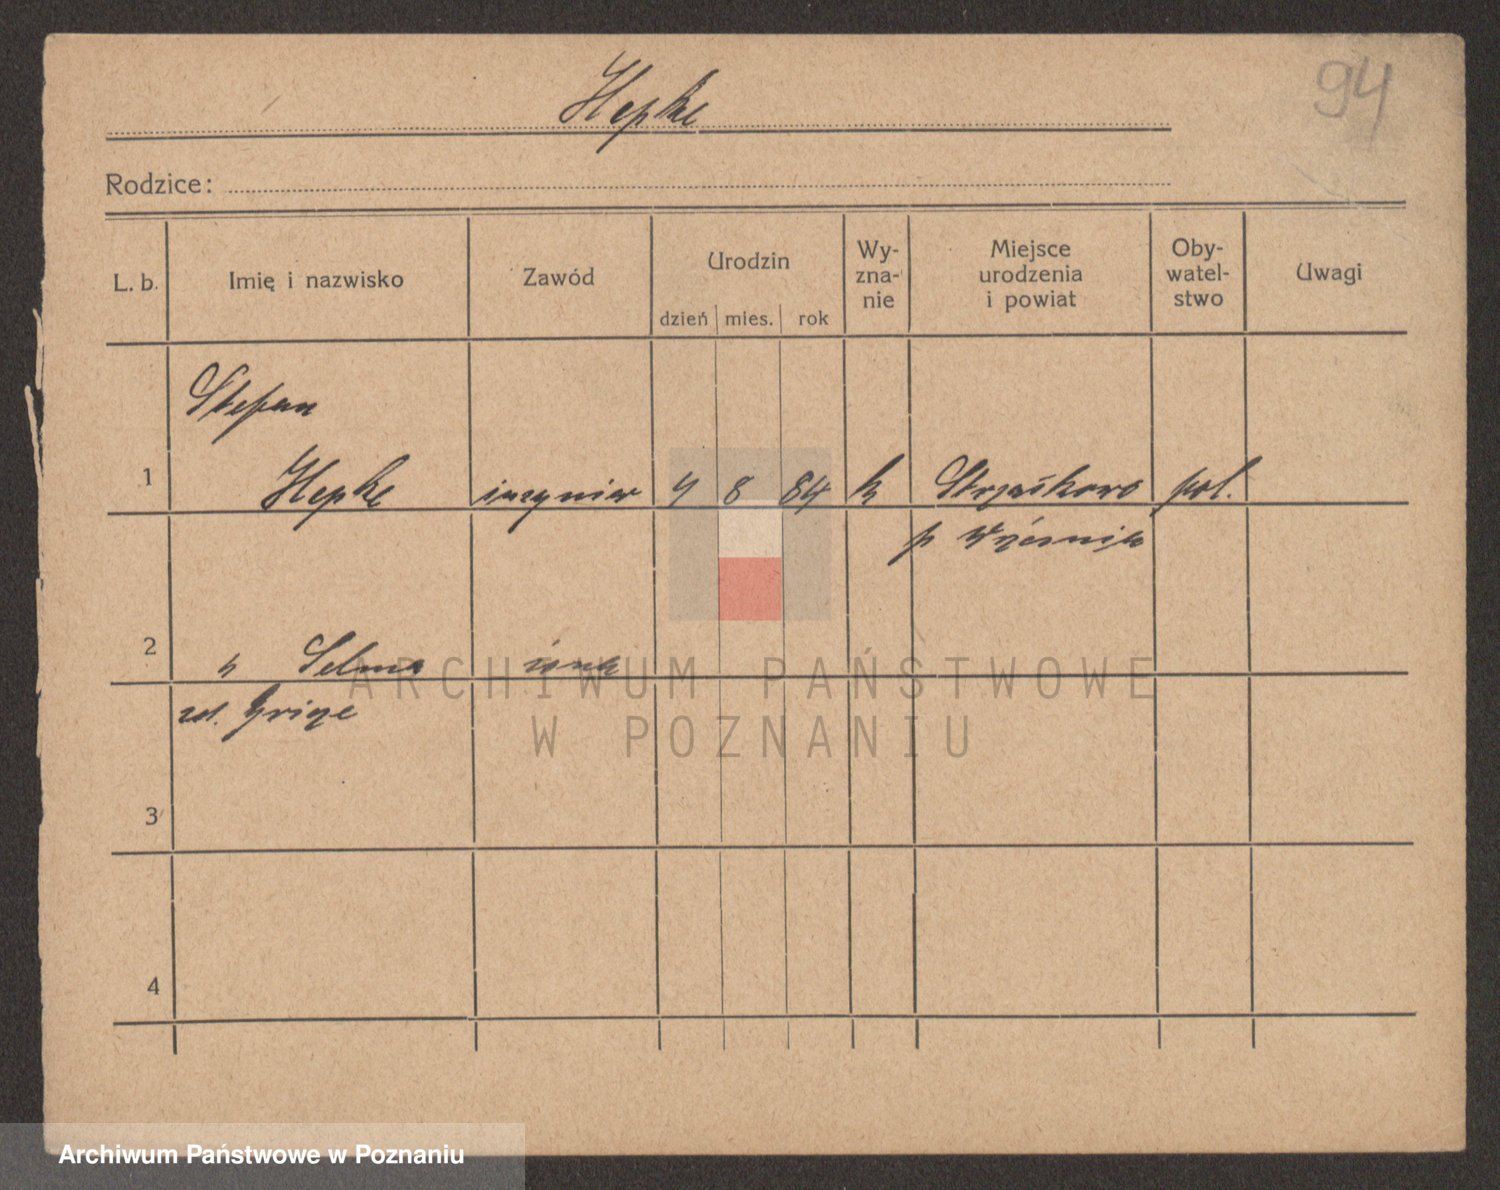 Hepke
94
Rodzice:
L. b. Imię i nazwisko Zawód Urodzin Wy- Miejsce Oby- Uwagi
zna- urodzenia watel-
nie i powiat stwo
dzień mies. rok
Stefan
1 Hepke inżynier 8 84 k pol.
p Września
2 " Selma żona
zd.
3
4
ARCHIWUM PAŃSTWOWE
W POZNANIU
Archiwum Państwowe w Poznaniu